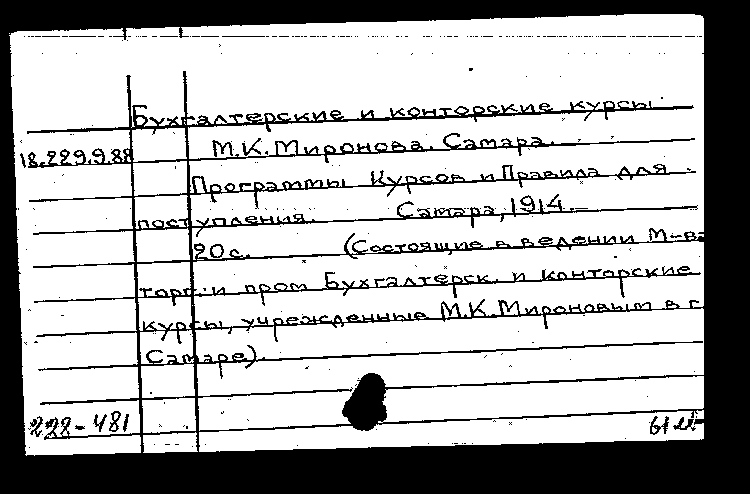 Бухгалтерские и конторские курсы
18.229.9.88 М.К.Миронова. Самара.
Программы Курсов и Правила для
поступления. Самара, 1914.
20 с. (Состоящие в ведении М-ва
торг. и пром Бухгалтерск. и конторские
курсы, учрежденные М.К.Мироновым в г.
Самаре).
228-481